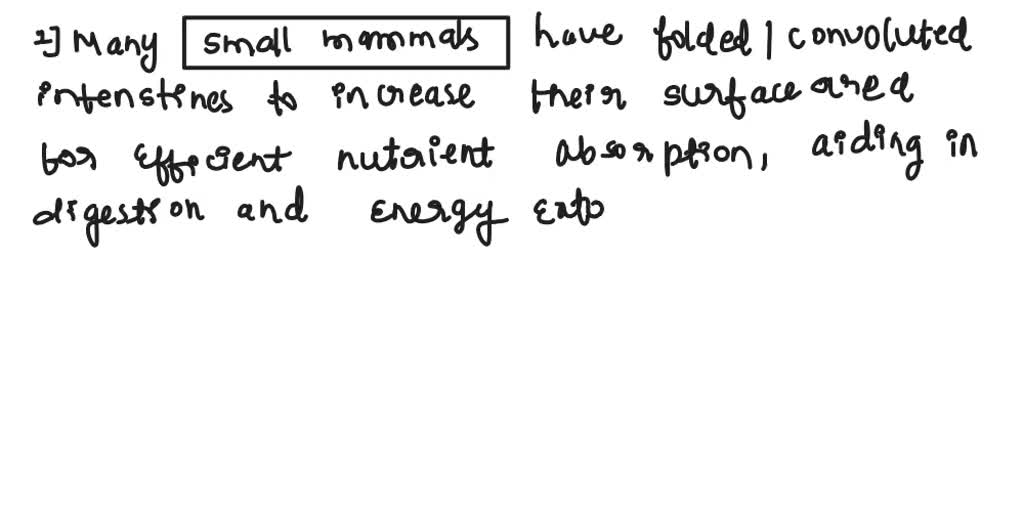 1] Many small mammals have folded | convoluted
intenstines to increase their surface area
for efficient nutrient absorption, aiding in
digestion and energy exto